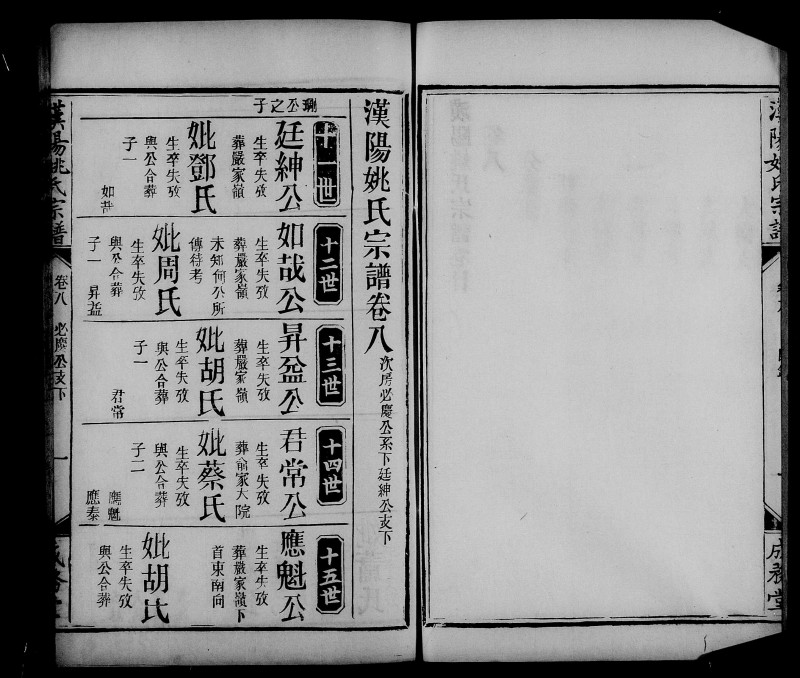 漢陽姚氏宗譜卷八
次房必慶公系下廷紳公支下
十一世
琍公之子
廷紳公
生卒失攷
葬嚴家嶺
妣鄧氏
生卒失攷
與公合葬
子一
如哉
十二世
如哉公
生卒失攷
葬嚴家嶺
未知何公所
傳待考
妣周氏
生卒失攷
與公合葬
子一
昇益
十三世
昇益公
生卒失攷
葬嚴家嶺
妣胡氏
生卒失攷
與公合葬
子一
君常
十四世
君常公
生卒失攷
葬俞家大院
妣蔡氏
生卒失攷
與公合葬
子二
應魁
應泰
十五世
應魁公
生卒失攷
葬嚴家嶺下
首東南向
妣胡氏
生卒失攷
與公合葬
漢陽姚氏宗譜
卷八
必慶公支下
一
漢陽姚氏宗譜
成務堂